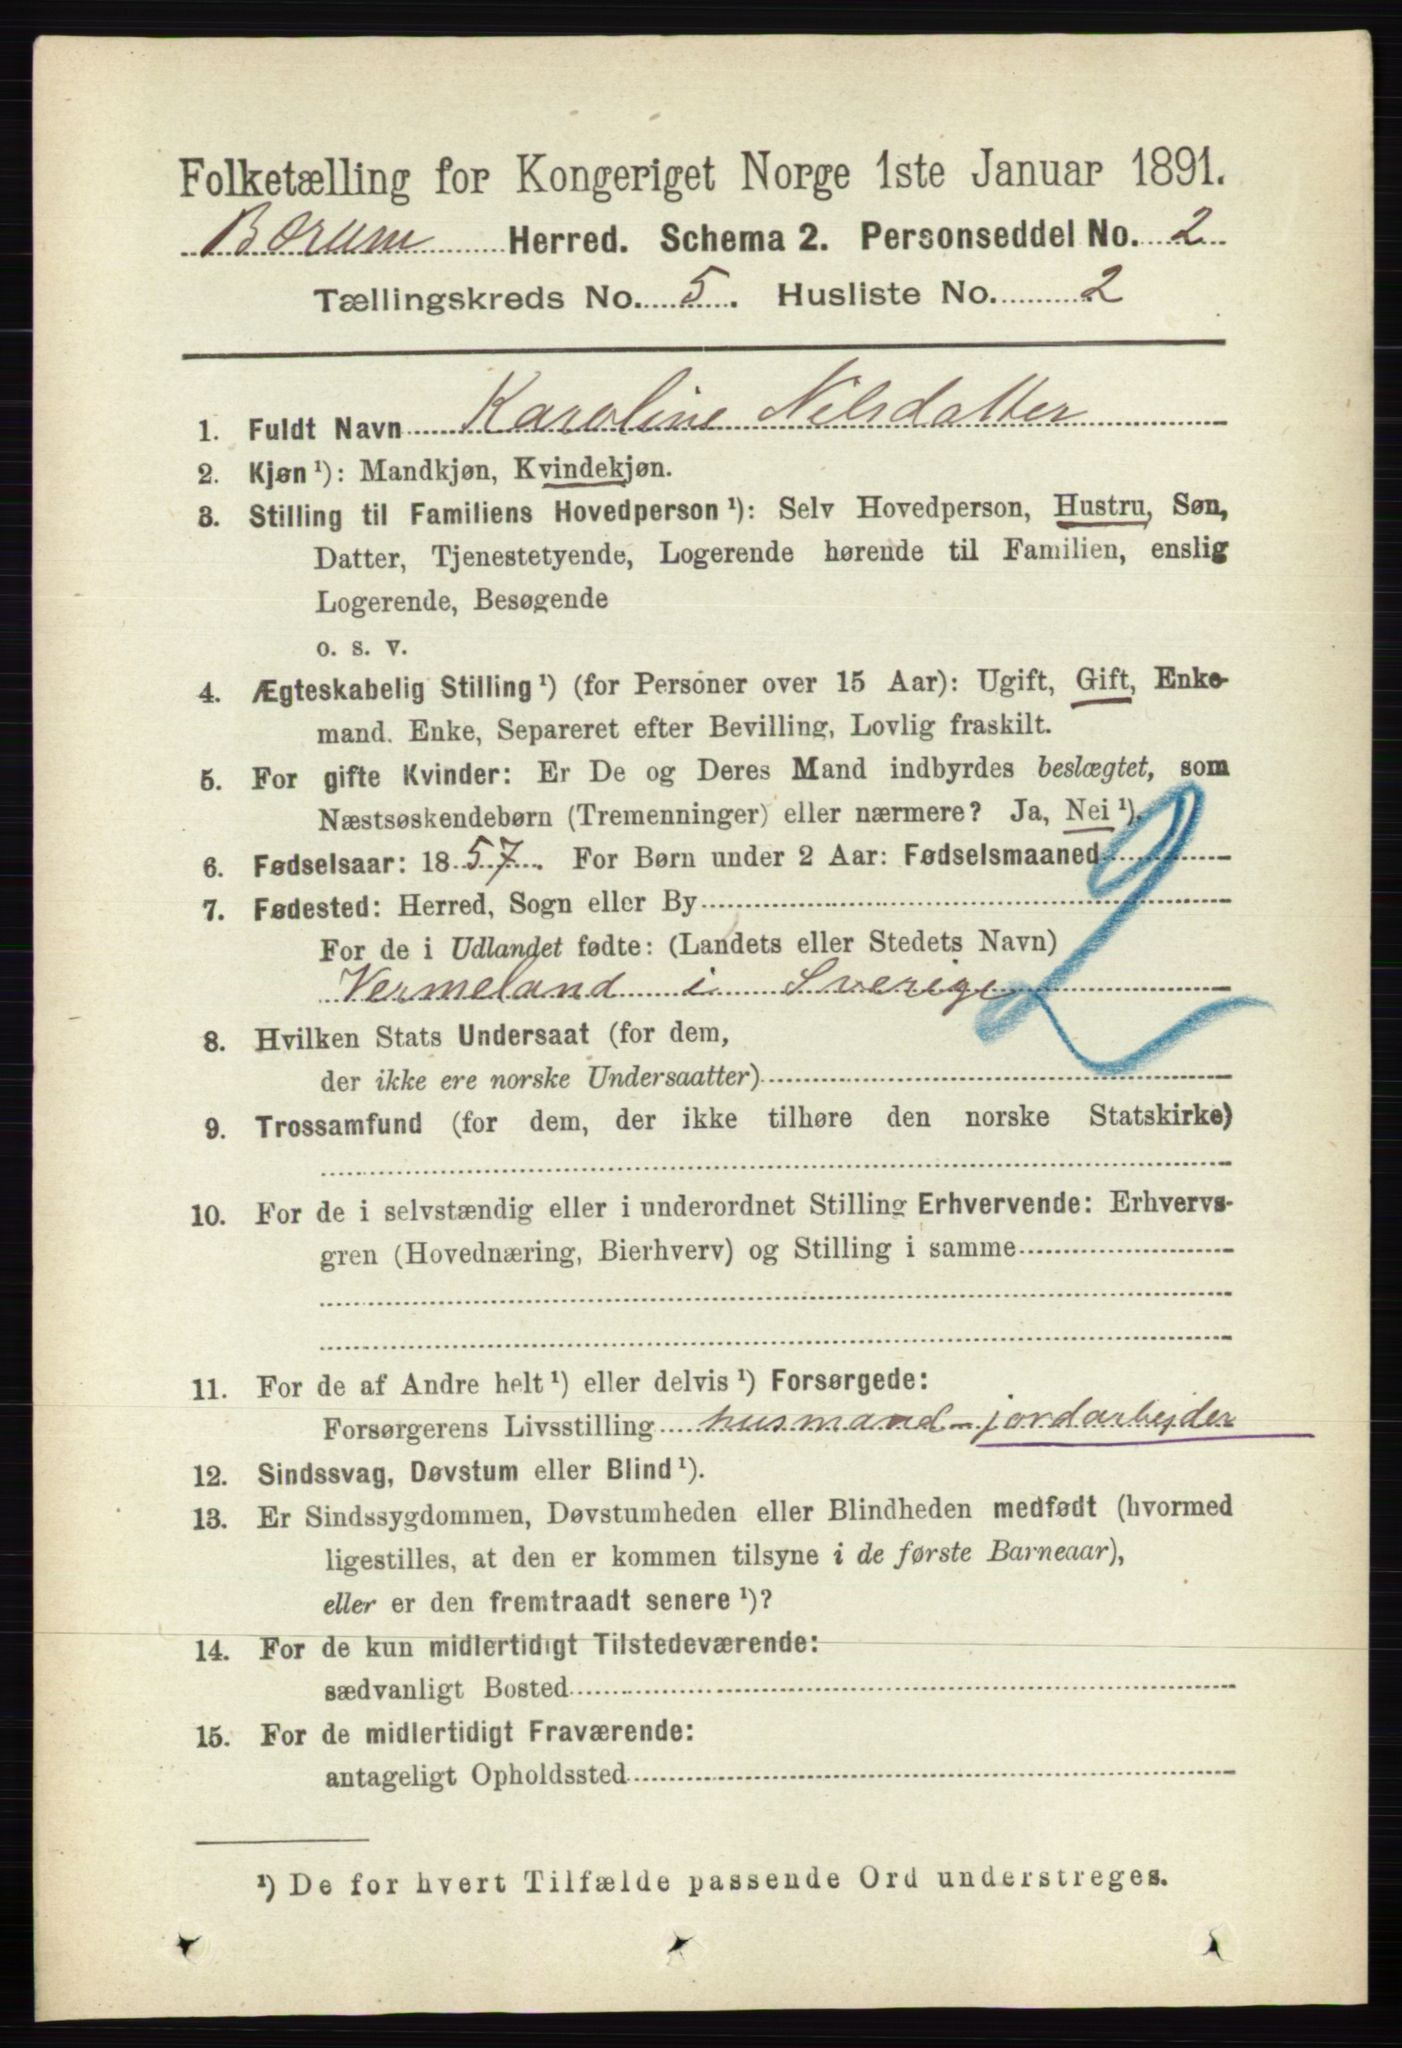 Folketælling for Kongeriget Norge 1ste Januar 1891.
Bærum Herred. Schema 2. Personseddel No. 2
Tællingskreds No. 5. Husliste No. 2
1. Fuldt Navn Karoline Nilsdatter
2. Kjøn ¹): Mandkjøn, Kvindekjøn.
3. Stilling til Familiens Hovedperson ¹): Selv Hovedperson, Hustru, Søn,
Datter, Tjenestetyende, Logerende hørende til Familien, enslig
Logerende, Besøgende
o. s. v.
4. Ægteskabelig Stilling ¹) (for Personer over 15 Aar): Ugift, Gift, Enke-
mand. Enke, Separeret efter Bevilling, Lovlig fraskilt.
5. For gifte Kvinder: Er De og Deres Mand indbyrdes beslægtet, som
Næstsøskendebørn (Tremenninger) eller nærmere? Ja, Nei ¹).
6. Fødselsaar: 1857. For Børn under 2 Aar: Fødselsmaaned
7. Fødested: Herred, Sogn eller By
For de i Udlandet fødte: (Landets eller Stedets Navn)
Vermeland i Sverige
2
8. Hvilken Stats Undersaat (for dem,
der ikke ere norske Undersaatter)
9. Trossamfund (for dem, der ikke tilhøre den norske Statskirke)
10. For de i selvstændig eller i underordnet Stilling Erhvervende: Erhvervs-
gren (Hovednæring, Bierhverv) og Stilling i samme
11. For de af Andre helt ¹) eller delvis ¹) Forsørgede:
Forsørgerens Livsstilling husmand - jordarbejder
12. Sindssvag, Døvstum eller Blind ¹).
13. Er Sindssygdommen, Døvstumheden eller Blindheden medfødt (hvormed
ligestilles, at den er kommen tilsyne i de første Barneaar),
eller er den fremtraadt senere ¹)?
14. For de kun midlertidigt Tilstedeværende:
sædvanligt Bosted
15. For de midlertidigt Fraværende:
antageligt Opholdssted
¹) De for hvert Tilfælde passende Ord understreges.